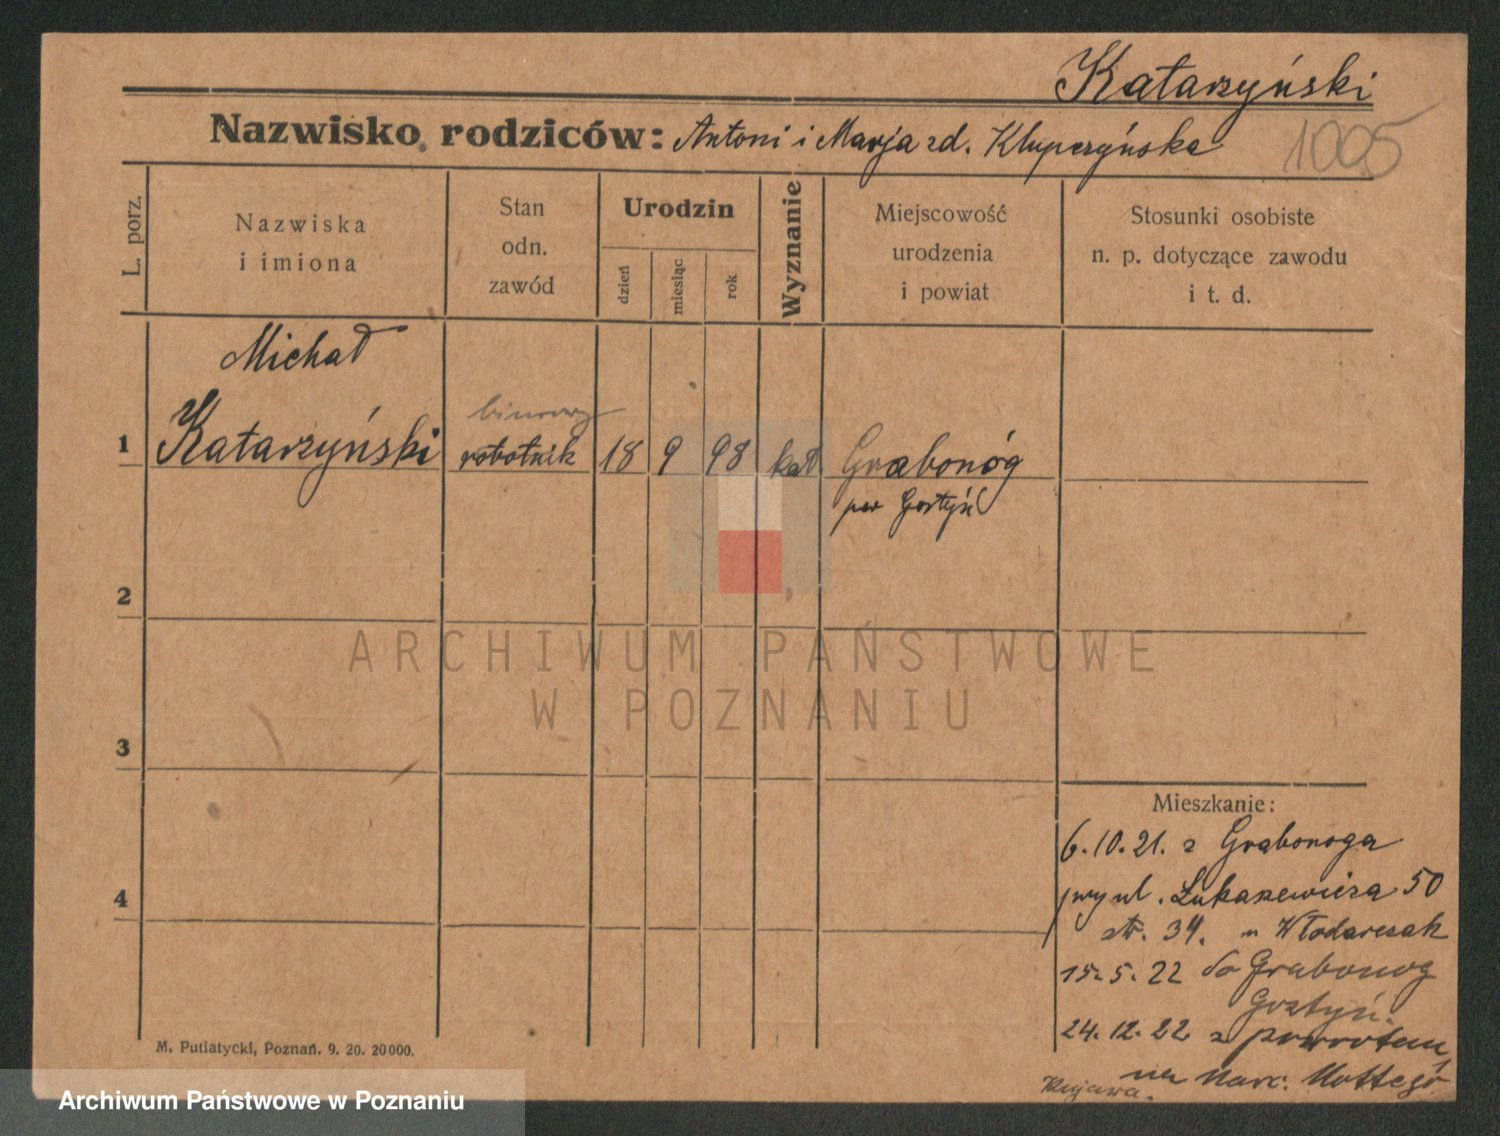 Katarzyński
Nazwisko rodziców: Antoni i Marja zd. Klupczyńska
1005
L. porz.
Nazwiska
i imiona
Stan
odn.
zawód
Urodzin
dzień
miesiąc
rok
Wyznanie
Miejscowość
urodzenia
i powiat
Stosunki osobiste
n. p. dotyczące zawodu
i t. d.
Michał
biurowy
1 Katarzyński robotnik 18 9 98 kat Grabonóg
pow Gostyń
2
3
4
Mieszkanie:
6.10.21. z Grabonoga
przy ul. Łukaszewicza 50
34. u Włodarczak
15.5.22 do Grabonog
Gostyń.
24.12.22 z powrotem
na Marc. Mottego
M. Putiatycki, Poznań. 9. 20. 20000.
ARCHIWUM PAŃSTWOWE
W POZNANIU
Archiwum Państwowe w Poznaniu